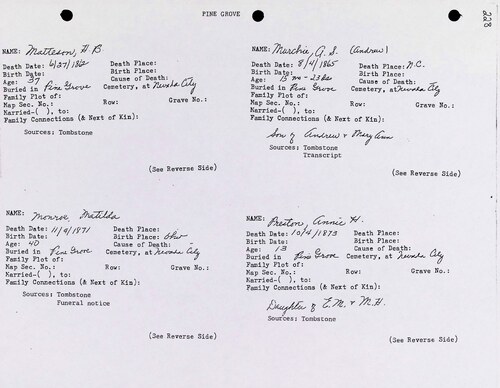 PINE GROVE
228
NAME: Matteson, H B
Death Date: 6/27/1862 Death Place:
Birth Date: Birth Place:
Age: 37 Cause of Death:
Buried in Pine Grove Cemetery, at Nevada City
Family Plot of:
Map Sec. No.: Row: Grave No.:
Married-( ), to:
Family Connections (& Next of Kin):
Sources: Tombstone
(See Reverse Side)
NAME: Murchie, A. S. (Andrew)
Death Date: 8/4/1865 Death Place: N.C.
Birth Date: Birth Place:
Age: 15 mo - 23 ds Cause of Death:
Buried in Pine Grove Cemetery, at Nevada City
Family Plot of:
Map Sec. No.: Row: Grave No.:
Married-( ), to:
Family Connections (& Next of Kin):
Son of Andrew & Mary Ann
Sources: Tombstone
Transcript
(See Reverse Side)
NAME: Monroe, Matilda
Death Date: 11/9/1871 Death Place:
Birth Date: Birth Place:
Age: 40 Cause of Death:
Buried in Pine Grove Cemetery, at Nevada City
Family Plot of:
Map Sec. No.: Row: Grave No.:
Married-( ), to:
Family Connections (& Next of Kin):
Sources: Tombstone
Funeral notice
(See Reverse Side)
NAME: Preston, Annie H.
Death Date: 10/4/1873 Death Place:
Birth Date: Birth Place:
Age: 13 Cause of Death:
Buried in Pine Grove Cemetery, at Nevada City
Family Plot of:
Map Sec. No.: Row: Grave No.:
Married-( ), to:
Family Connections (& Next of Kin):
Daughter of E.M. & M.H.
Sources: Tombstone
(See Reverse Side)